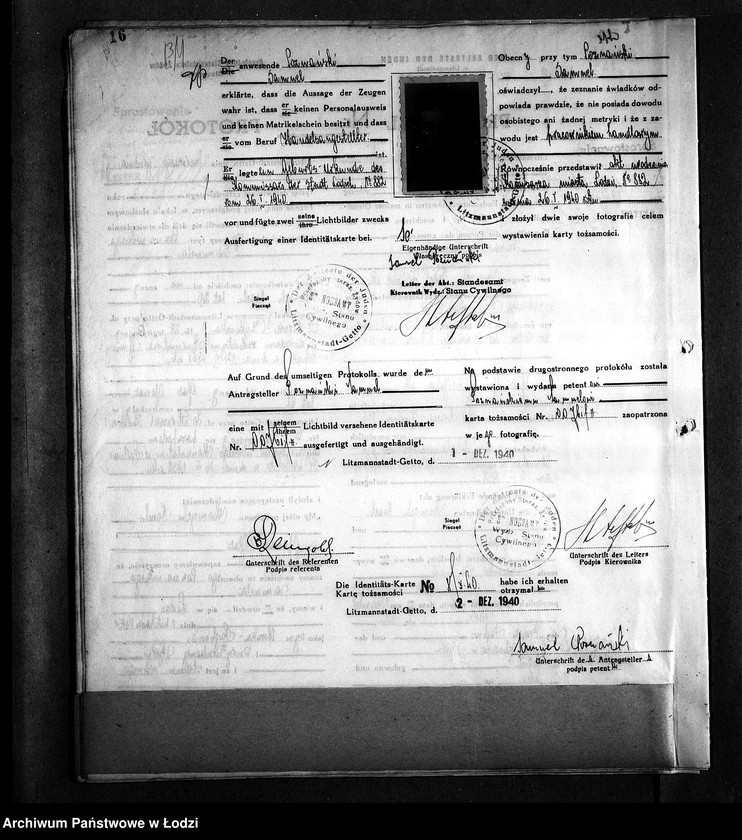 16
Der anwesende Poznański
Die Samuel
erklärte, dass die Aussage der Zeugen
wahr ist, dass er keinen Personalausweis
sie
und keinen Matrikelschein besitzt und dass
er vom Beruf Handelsangestellter
sie
ist.
Er legte zum Geburts-Urkunde des
Sie
Kommissars der Stadt Lodsch, Nr 882
vom 26.I.1940
vor und fügte zwei seine Lichtbilder zwecks
ihre
Ausfertigung einer Identitätskarte bei.
Obecny przy tym Poznański
Samuel
oświadczył, że zeznanie świadków od-
powiada prawdzie, że nie posiada dowodu
osobistego ani żadnej metryki i że z za-
wodu jest pracownikiem handlowym
Równocześnie przedstawił akt urodzenia
Komisarza miasta Łodzi, Nr 882/
z dnia 26.I.1940 roku
i złożył dwie swoje fotografie celem
wystawienia karty tożsamości.
Litzmannstadt
Eigenhändige Unterschrift
Własnoręczny podpis
Samuel Poznański
Leiter der Abt.: Standesamt
Kierownik Wydz.: Stanu Cywilnego
Siegel
Pieczęć
Der Aelteste der Juden
Stanu
Cywilnego
Litzmannstadt-Getto
Auf Grund des umseitigen Protokolls wurde dem
Antragsteller Poznański Samuel
eine mit seinem Lichtbild versehene Identitätskarte
ihrem
Nr. ausgefertigt und ausgehändigt.
Na podstawie drugostronnego protokółu została
wystawiona i wydana petentowi
Poznańskiemu Samuelowi
karta tożsamości Nr. zaopatrzona
w jego fotografię.
Litzmannstadt-Getto, d. 1 - DEZ. 1940
Siegel
Pieczęć
Der Aelteste der Juden
Wydz. Stanu
Cywilnego
Litzmannstadt-Getto
Unterschrift des Referenten
Podpis referenta
Unterschrift des Leiters
Podpis Kierownika
Die Identitäts-Karte No habe ich erhalten
Kartę tożsamości otrzymał
Litzmannstadt-Getto, d. 2 - DEZ. 1940
Samuel Poznański
Unterschrift des Antragstellers
podpis petenta
Archiwum Państwowe w Łodzi